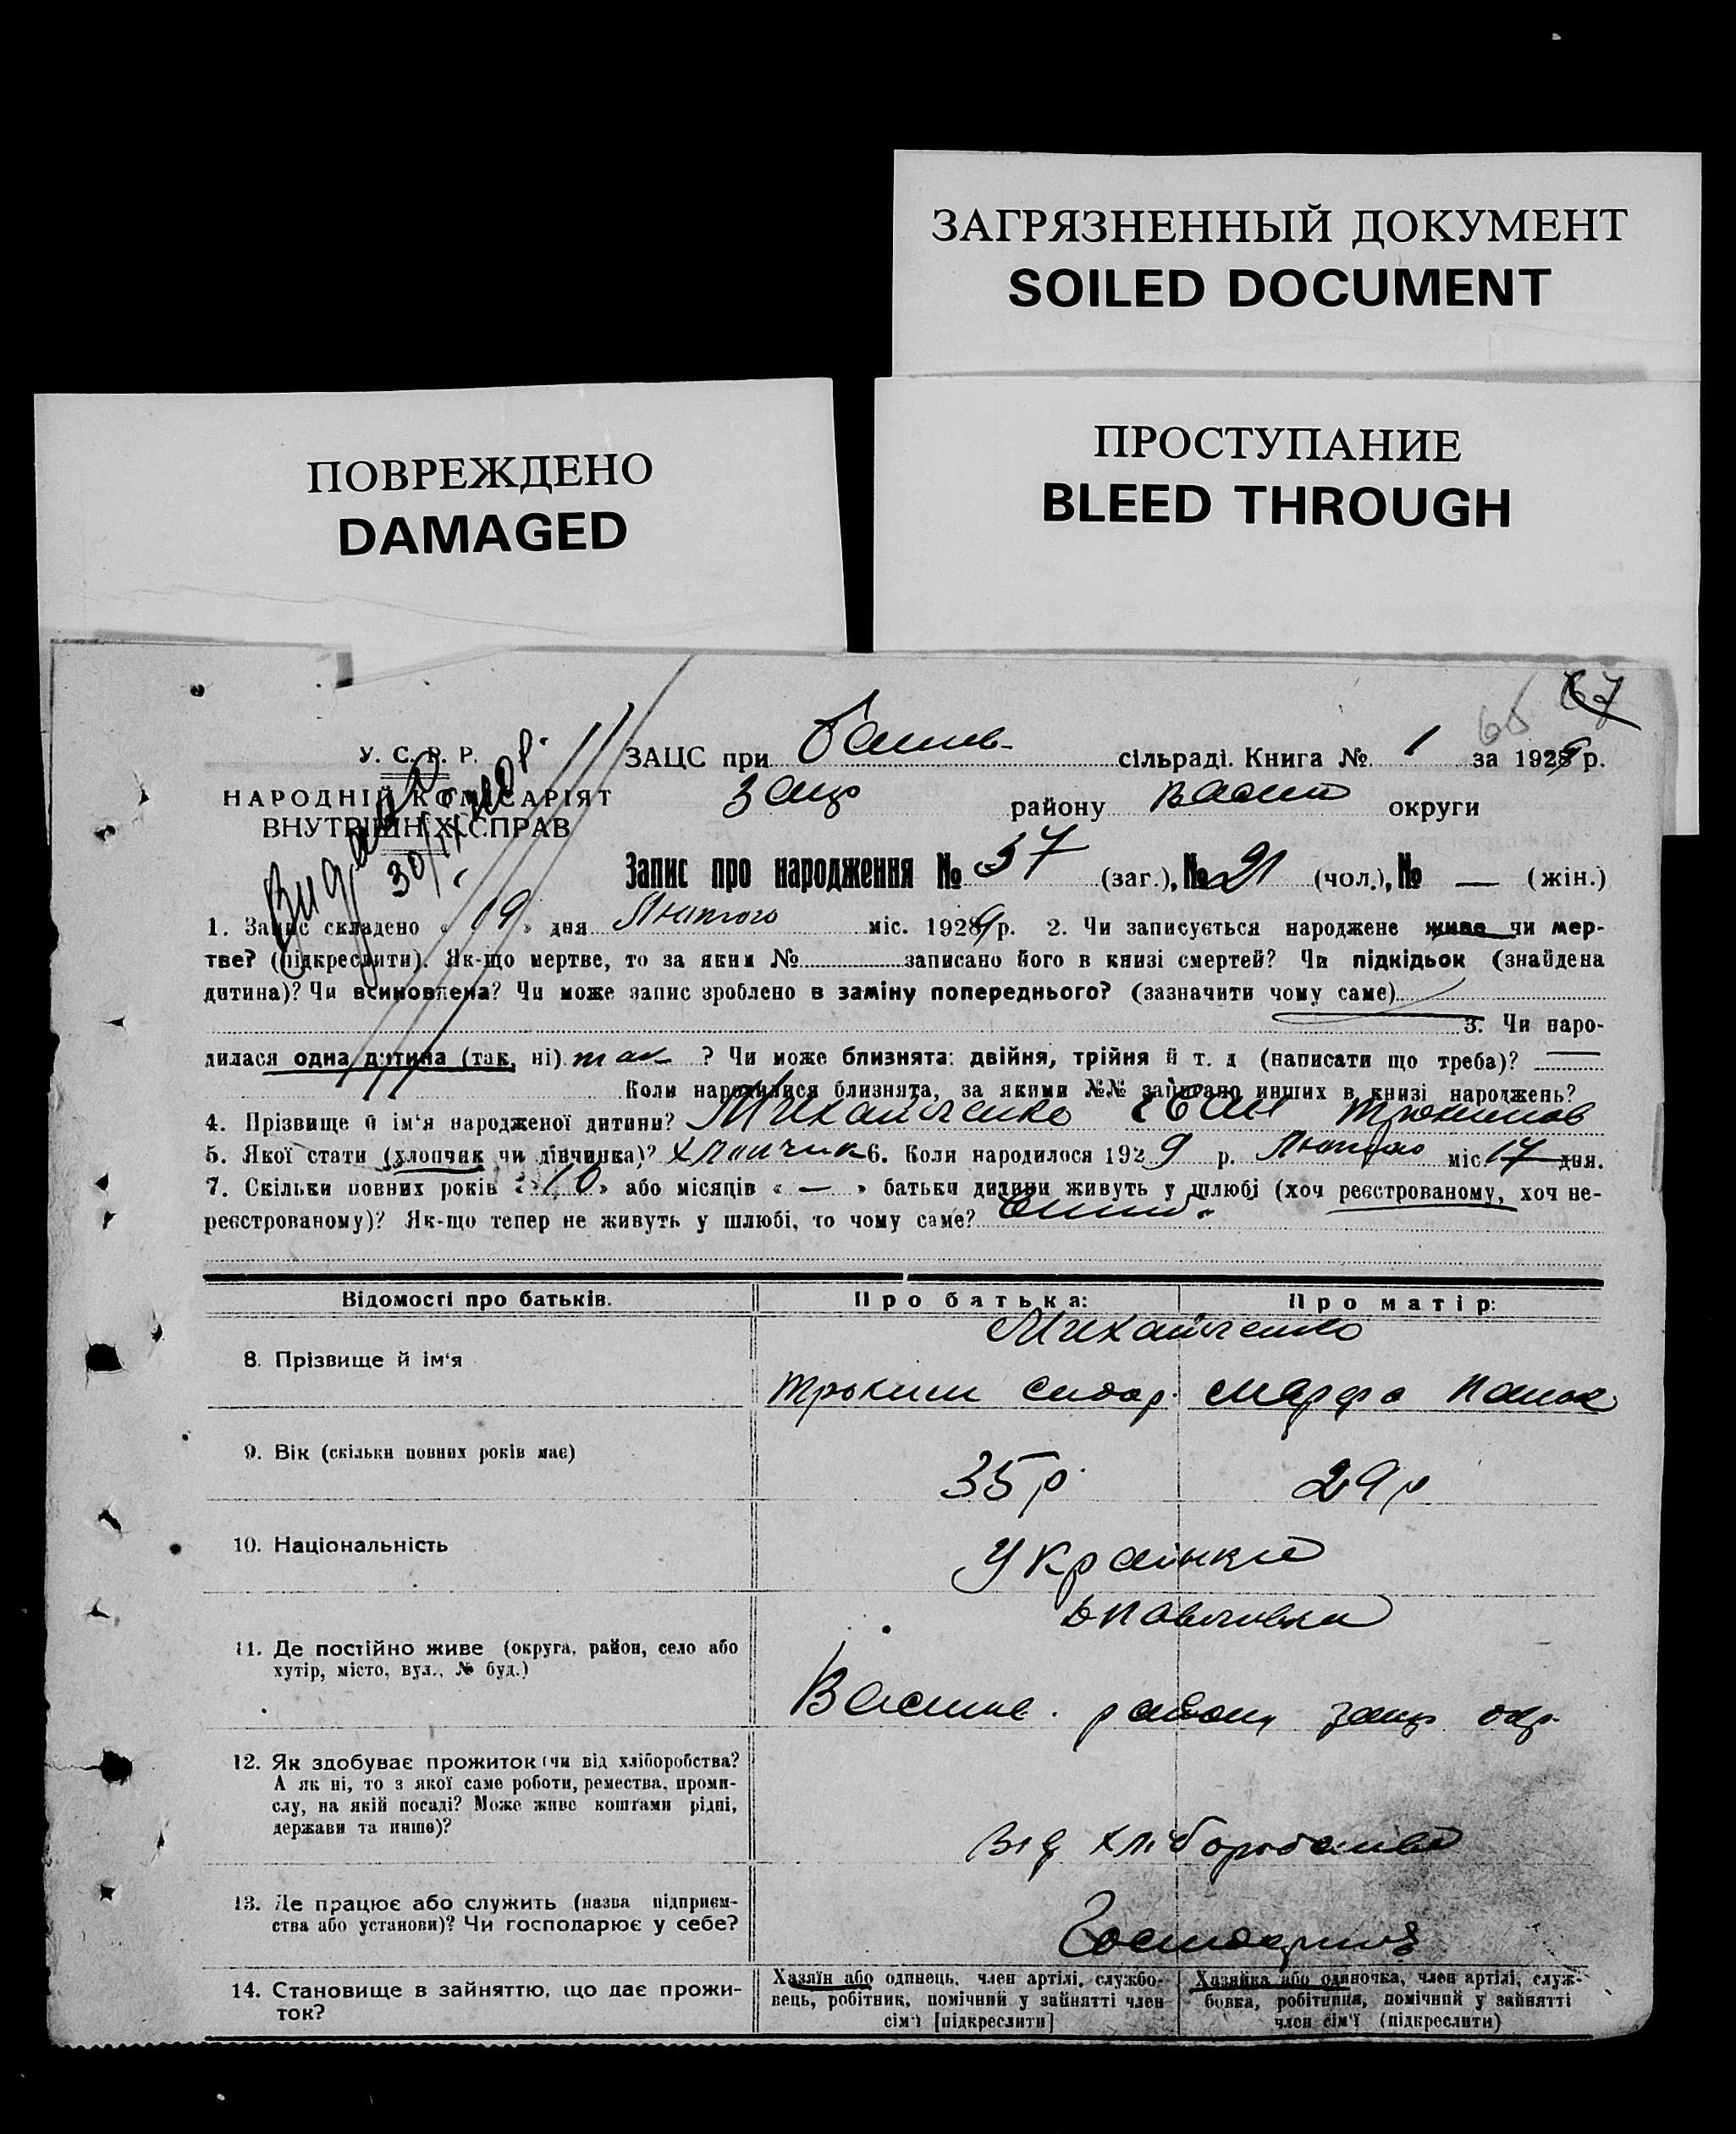 ЗАГРЯЗНЕННЫЙ ДОКУМЕНТ
SOILED DOCUMENT
ПОВРЕЖДЕНО
DAMAGED
ПРОСТУПАНИЕ
BLEED THROUGH
65 67
У. С. Р. Р.
НАРОДНІЙ КОМІСАРІЯТ
ВНУТРІШНІХ СПРАВ
ЗАЦС при сільраді. Книга № 1 за 1929 р.
району округи
Запис про народження № 37 (заг.), № 21 (чол.), № — (жін.)
1. Запис складено « 19 » дня Лютого міс. 1929 р. 2. Чи записується народжене живе чи мер-
тве? (підкреслити). Як-що мертве, то за яким № записано його в книзі смертей? Чи підкідьок (знайдена
дитина)? Чи всиновлена? Чи може запис зроблено в заміну попереднього? (зазначити чому саме)
3. Чи наро-
дилася одна дитина (так, ні) так ? Чи може близнята: двійня, трійня й т. д (написати що треба)? —
Коли народилися близнята, за якими №№ записано инших в книзі народжень?
4. Прізвище й ім'я народженої дитини? Михайличенко Іван Трохимов
5. Якої стати (хлопчик чи дівчинка)? хлопчик 6. Коли народилося 1929 р. Лютого міс. 17 дня.
7. Скільки повних років « 10 » або місяців « — » батьки дитини живуть у шлюбі (хоч реєстрованому, хоч не-
реєстрованому)? Як-що тепер не живуть у шлюбі, то чому саме?
Відомості про батьків. Про батька: Про матір:
Михайличенко
8. Прізвище й ім'я Трохим Сидор. Марфа Панок
9. Вік (скільки повних років має) 35 р. 29 р
10. Національність Українці
11. Де постійно живе (округа, район, село або
хутір, місто, вул., № буд.)
Васильв. району Запор окр.
12. Як здобуває прожиток (чи від хліборобства?
А як ні, то з якої саме роботи, ремества, проми-
слу, на якій посаді? Може живе коштами рідні,
держави та инше)?
Від хліборобства
13. Де працює або служить (назва підприєм-
ства або установи)? Чи господарює у себе?
14. Становище в зайняттю, що дає прожи-
ток?
Хазяїн або одинець, член артілі, службо-
вець, робітник, помічний у зайнятті член
сім'ї [підкреслити]
Хазяйка або одиночка, член артілі, служ-
бовка, робітниця, помічний у зайнятті
член сім'ї (підкреслити)